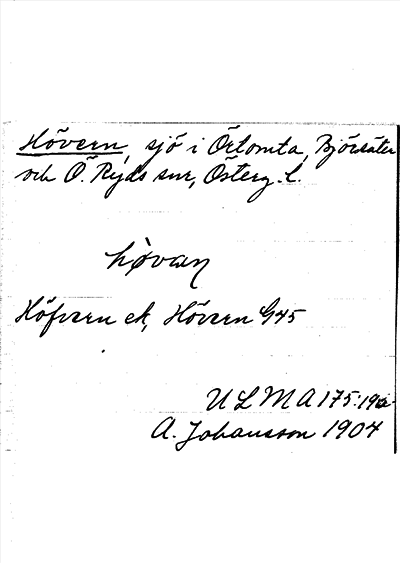 Hövern, sjö i Örtomta, Björsäter
och Ö. Ryds snr, Österg. l.
høvan
Höfvern ek, Hövern G45
ULMA 175:19
A. Johansson 1904